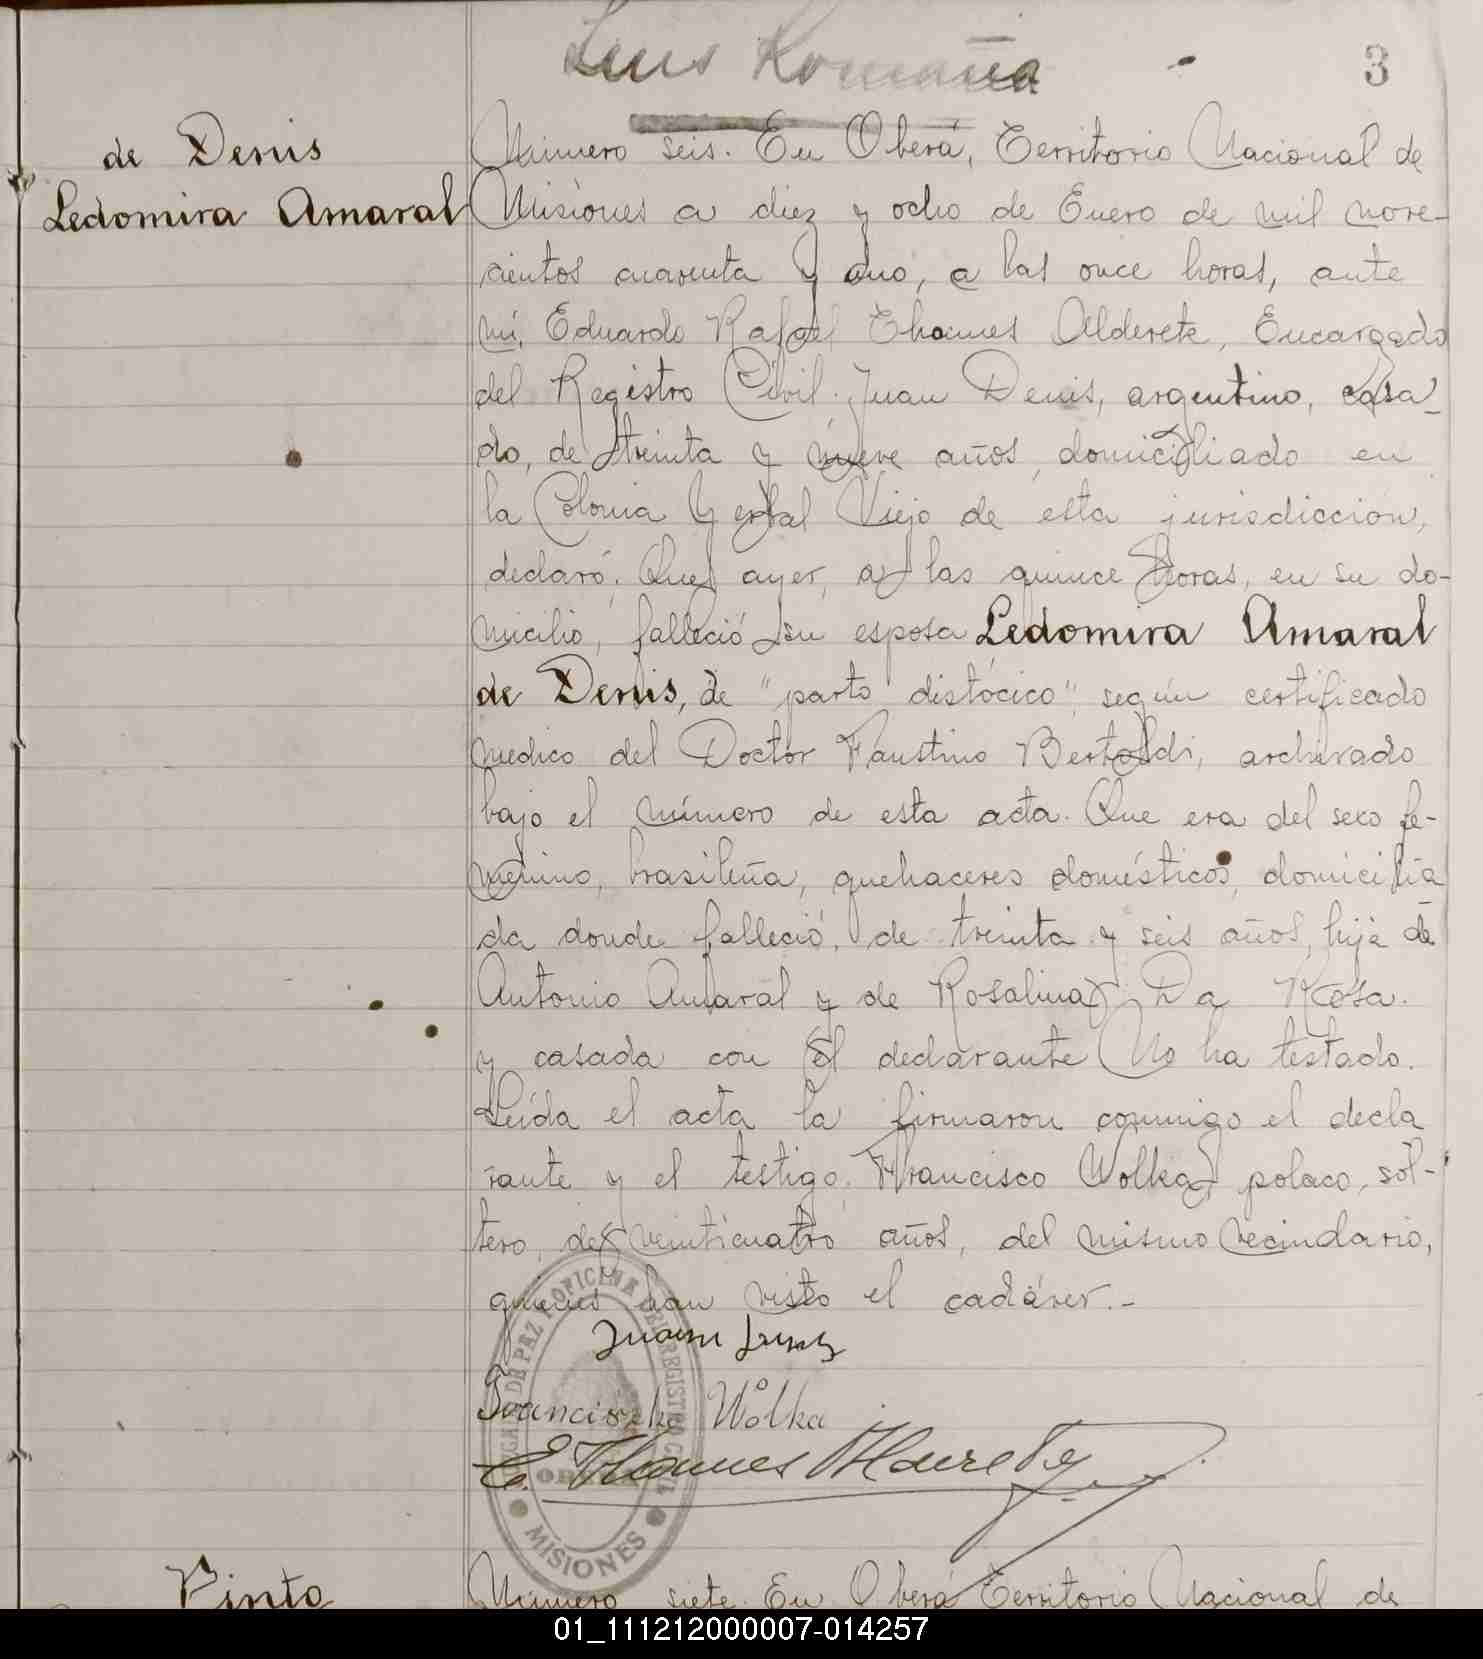 Luis Romaña
3
de Denis
Ledomira Amaral
Número seis. En Oberá, Territorio Nacional de
Misiones a diez y ocho de Enero de mil nove-
cientos cuarenta y uno, a las once horas, ante
mí, Eduardo Rafael Thames Alderete, Encargado
del Registro Civil. Juan Denis, argentino, casa-
do, de treinta y nueve años, domiciliado en
la Colonia Yerbal Viejo de esta jurisdicción,
declaró: Que ayer, a las quince horas, en su do-
micilio, falleció su esposa Ledomira Amaral
de Denis, de "parto distócico", según certificado
medico del Doctor Faustino Bertoldi, archivado
bajo el número de esta acta. Que era del sexo fe-
menino, brasileña, quehaceres domésticos, domicilia
da donde falleció, de treinta y seis años, hija de
Antonio Amaral y de Rosalina Da Rosa.
y casada con el declarante No ha testado.
Leída el acta la firmaron conmigo el decla
rante y el testigo, Francisco Wolka, polaco, sol-
tero, de veinticuatro años, del mismo vecindario,
quienes han visto el cadáver.-
Juan
Franciszek Wolka
E. Thames Alderete
JUZGADO DE PAZ Y OFICINA DEL REGISTRO CIVIL
OBERA
MISIONES
Pinto
Número siete. En Oberá Territorio Nacional de
01_111212000007-014257